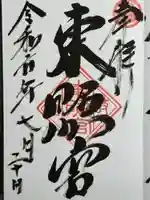 奉拝
東照宮
令和六年七月二十日